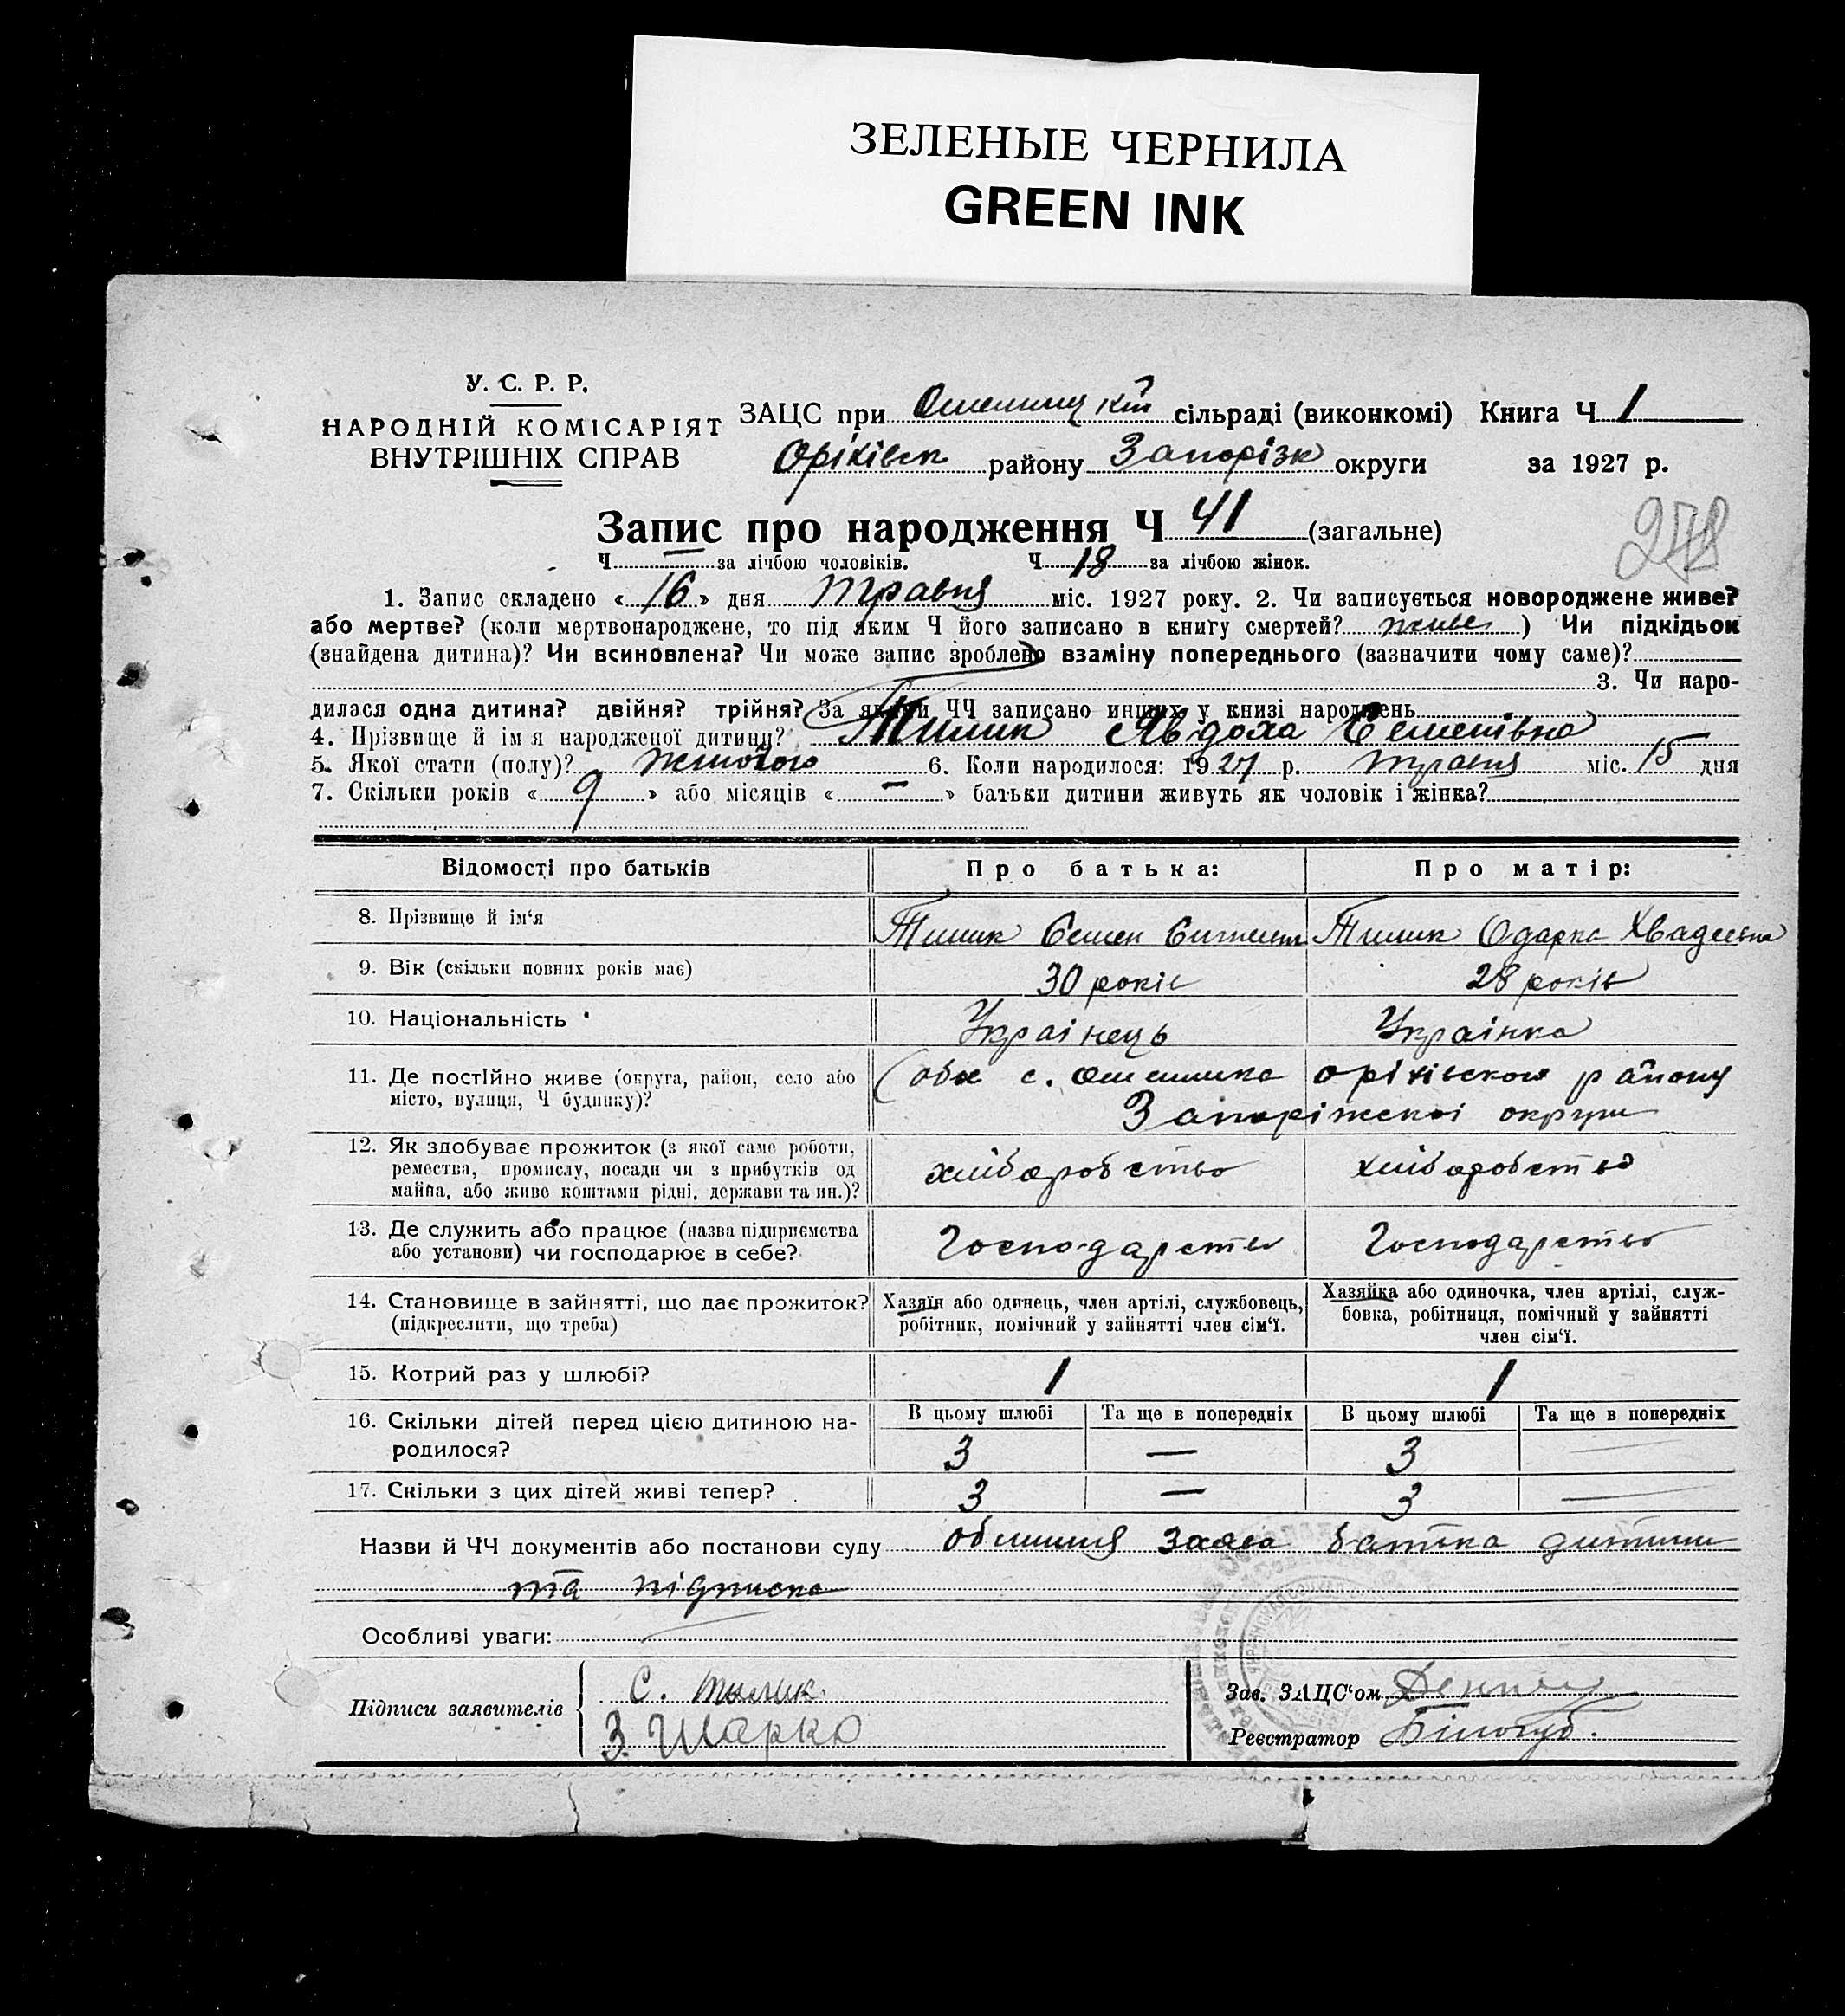 ЗЕЛЕНЫЕ ЧЕРНИЛА
GREEN INK
У. С. Р. Р.
НАРОДНІЙ КОМІСАРІЯТ
ВНУТРІШНІХ СПРАВ
ЗАЦС при Омельницькій сільраді (виконкомі) Книга Ч 1
Оріхівськ району Запорізьк округи за 1927 р.
Запис про народження Ч 41 (загальне)
Ч — за лічбою чоловіків. Ч 18 за лічбою жінок.
1. Запис складено « 16 » дня травня міс. 1927 року. 2. Чи записується новороджене живе?
або мертве? (коли мертвонароджене, то під яким Ч його записано в книгу смертей? живе ) Чи підкідьок
(знайдена дитина)? Чи всиновлена? Чи може запис зроблено взаміну попереднього (зазначити чому саме)?
3. Чи наро-
дилася одна дитина? двійня? трійня? За якими ЧЧ записано инших у книзі народжень
4. Прізвище й ім я народженої дитини? Тимик Явдоха Семенівна
5. Якої стати (полу)? жіночого 6. Коли народилося: 1927 р. травня міс. 15 дня
7. Скільки років « 9 » або місяців « — » батьки дитини живуть як чоловік і жінка?
Відомості про батьків Про батька: Про матір:
8. Прізвище й ім'я Тимик Семен Тимик Одарка Хвадеевна
9. Вік (скільки повних років має) 30 років 28 років
10. Національність Українець Українка
11. Де постійно живе (округа, район, село або
місто, вулиця, Ч будинку)?
обоє с. Омельника оріхівского району
Запоріжскоі округи
12. Як здобуває прожиток (з якої саме роботи,
ремества, промислу, посади чи з прибутків од
майна, або живе коштами рідні, держави та ин.)?
хліборобство хліборобство
13. Де служить або працює (назва підприємства
або установи) чи господарює в себе?
Господарство Господарство
14. Становище в зайнятті, що дає прожиток?
(підкреслити, що треба)
Хазяїн або одинець, член артілі, службовець,
робітник, помічний у зайнятті член сім'ї.
Хазяйка або одиночка, член артілі, служ-
бовка, робітниця, помічний у зайнятті
член сім'ї.
15. Котрий раз у шлюбі? 1 1
16. Скільки дітей перед цією дитиною на-
родилося?
В цьому шлюбі Та ще в попередніх В цьому шлюбі Та ще в попередніх
3 — 3 —
17. Скільки з цих дітей живі тепер? 3 — 3 —
Назви й ЧЧ документів або постанови суду заява батька дитини
та підписка
Особливі уваги:
Підписи заявителів
С. Тымик.
З. Шарко
Зав. ЗАЦС'ом
Реєстратор Білогуб.